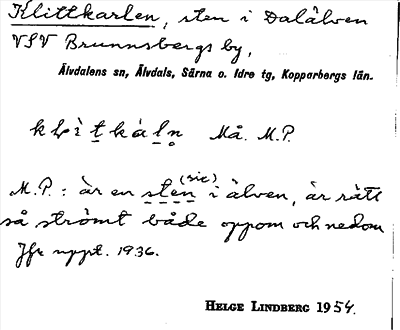 Klittkarlen, sten i Dalälven
VSV Brunnsbergs by,
Älvdalens sn, Älvdals, Särna o. Idre tg, Kopparbergs län.
Må. M.P.
M.P.: är en sten (sic) i älven, är rätt
så strömt både oppom och nedom
Jfr uppt. 1936.
HELGE LINDBERG 1954.